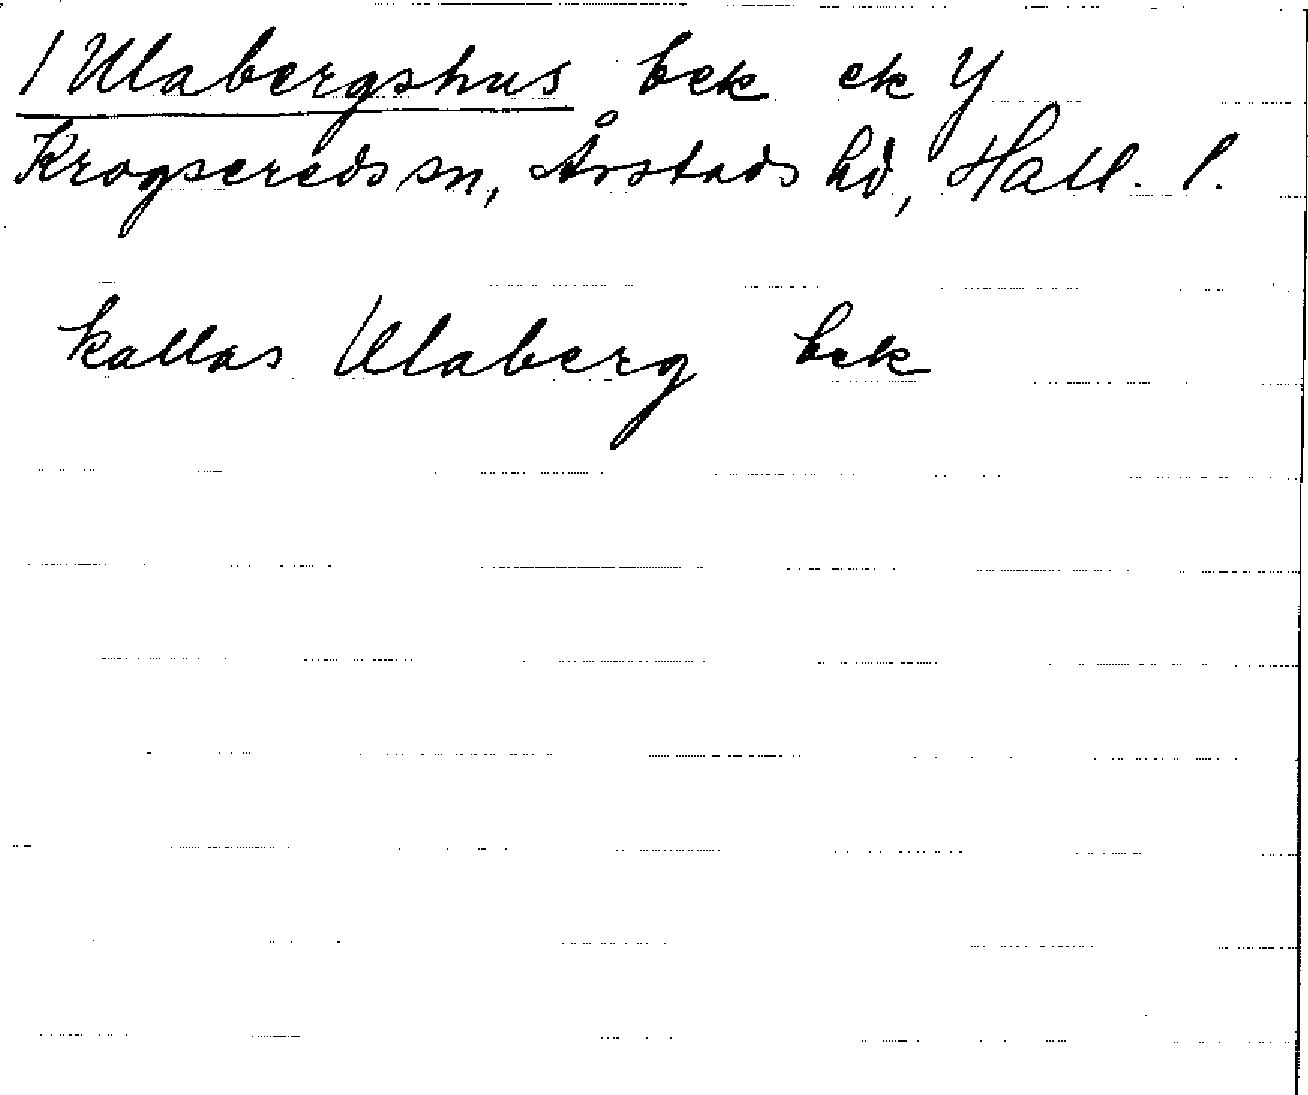 / Ulabergshus bek ek Y
Krogsereds sn, Årstads hd, Hall. l.
kallas Ulaberg bek